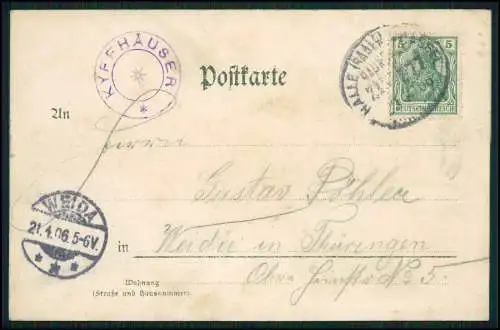 KYFFHÄUSER
*
Postkarte
HALLE (SAALE)
5 5
DEUTSCHES REICH
An
Herrn
Gustav Pöhler
WEIDA
21.4.06.5-6V.
* * *
in Weida in Thüringen
Wohnung
(Straße und Hausnummer)
Obere No 5.